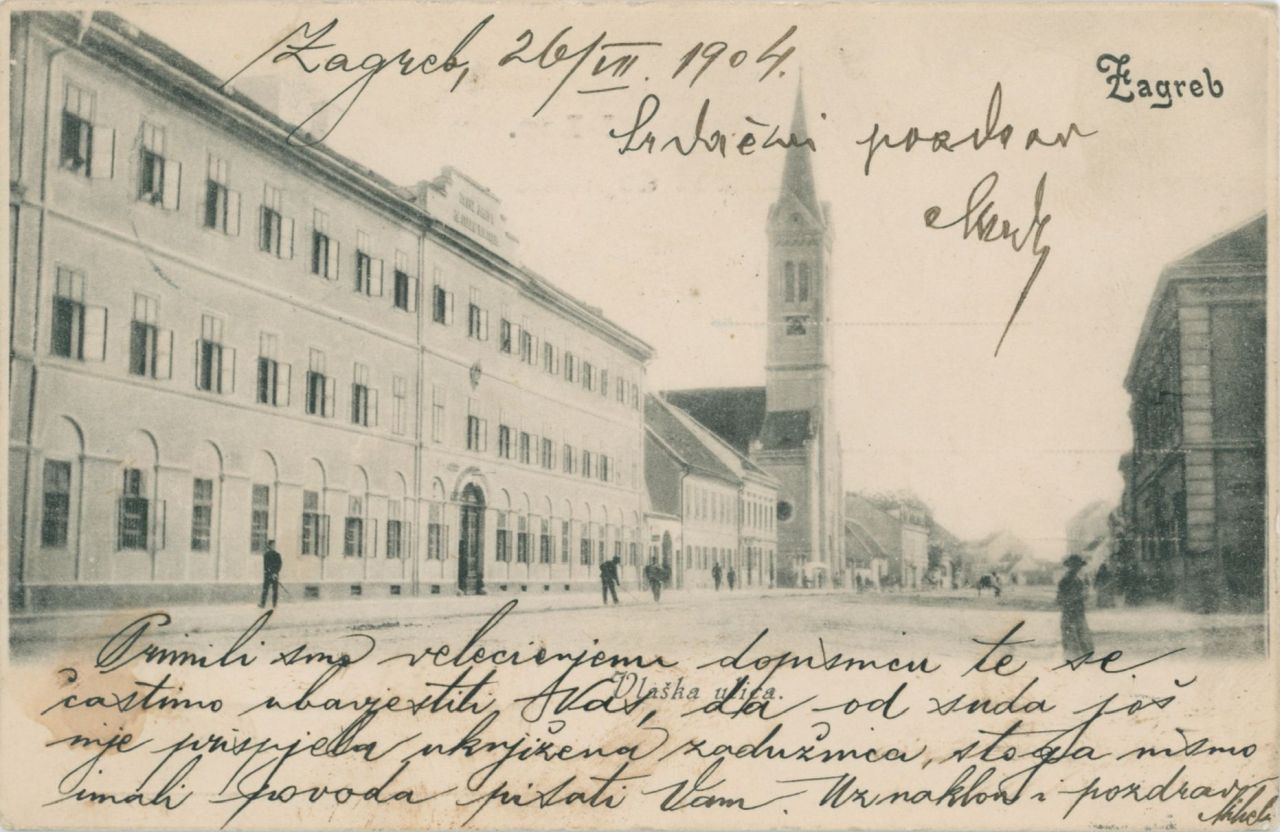 Zagreb, 26/VII. 1904.
Zagreb
Srdačni pozdrav
Vlaška ulica.
Primili smo velecienjenu dopisnicu te se
častimo ubavjestiti Vas, da od suda još
nije prispjela uknjižena zadužnica, stoga nismo
imali povoda pisati Vam. Uz naklon i pozdrav